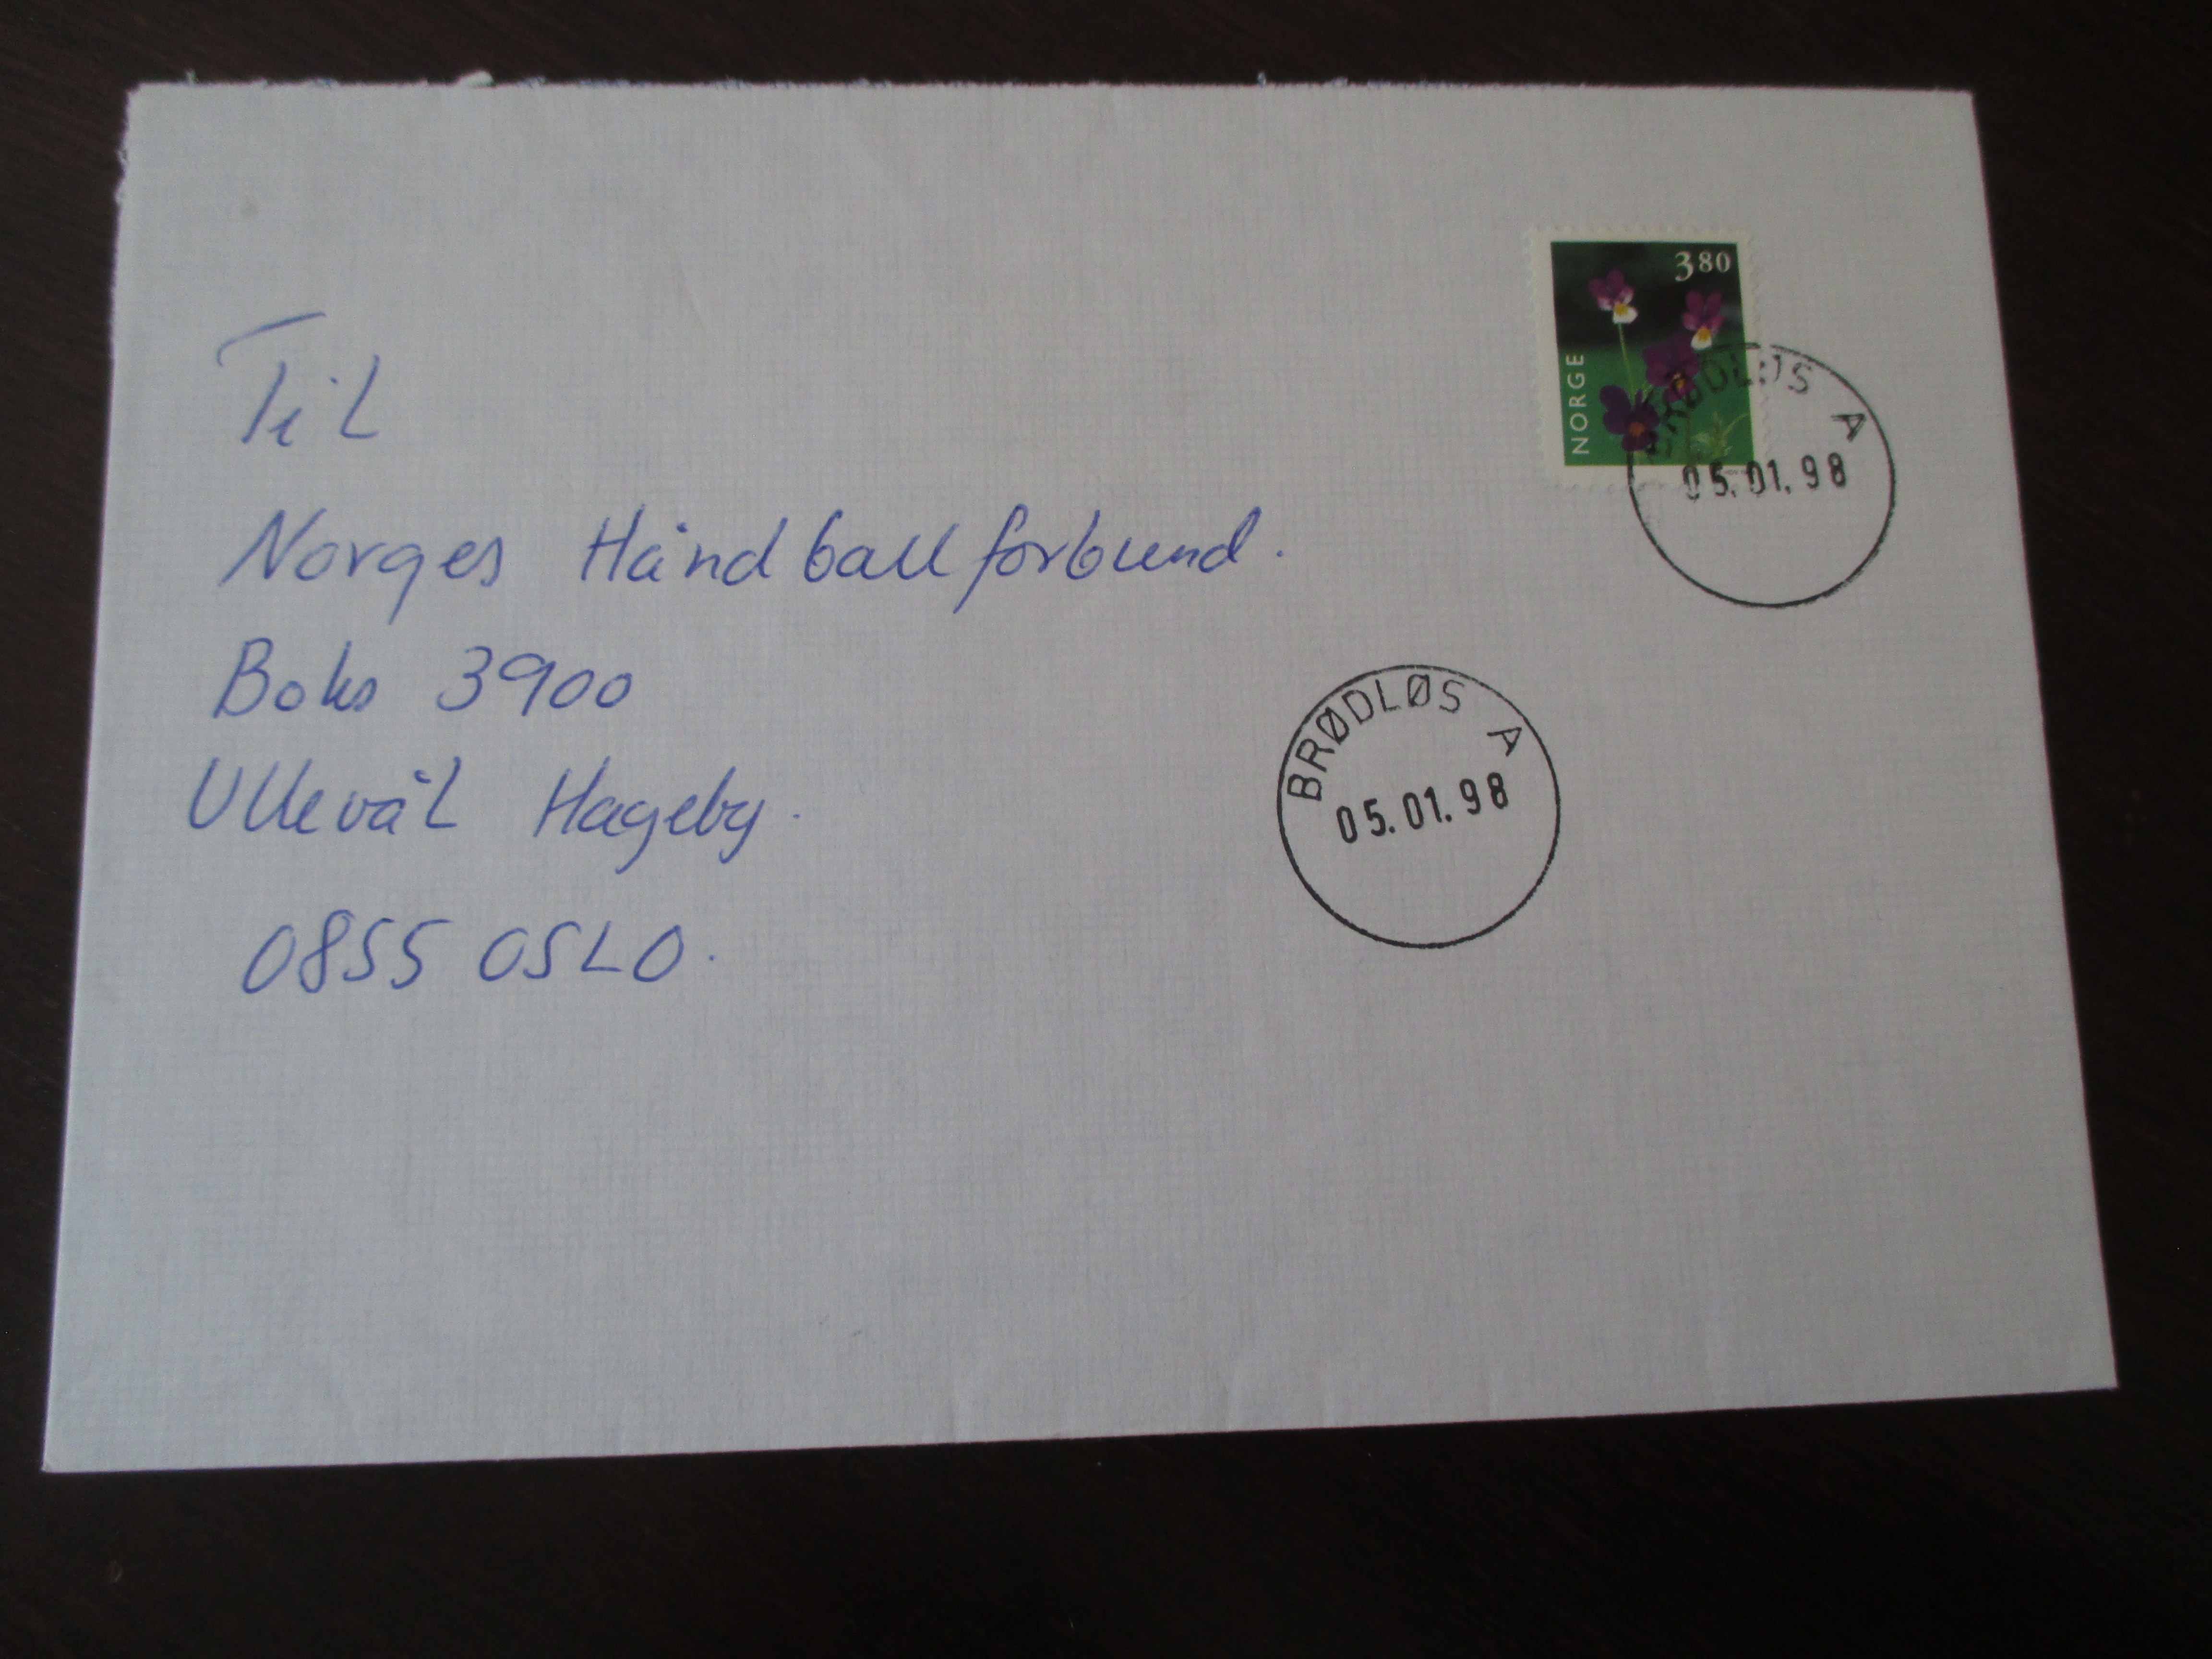 3 80
NORGE
BRØDLØS A
05.01.98
Til
Norges Håndballforbund.
Boks 3900
Ullevål Hageby.
0855 OSLO.
BRØDLØS A
05.01.98